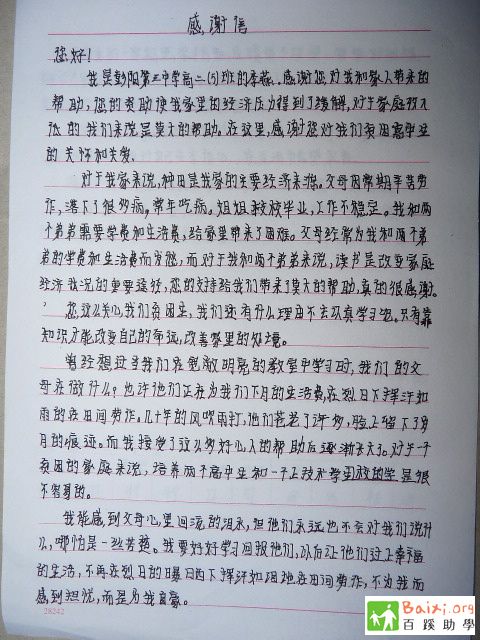 感谢信
您好！
我是彭阳第三中学高二(5)班的李薇。感谢您对我和家人带来的
帮助，您的资助使我家里的经济压力得到了缓解，对于家庭较大
的我们来说是莫大的帮助。在这里，感谢您对我们贫困高中生
的关怀和关爱。
对于我家来说，种田是我家的主要经济来源。父母因常期辛苦劳
作，落下了很多病，常年吃药。姐姐教校毕业，工作不稳定。我和两
个弟弟需要学费和生活费，给家里带来了困难。父母经常为我和两个弟
弟的学费和生活费而发愁，而对于我和两个弟弟来说，读书是改变家庭
经济状况的重要途径，您的支持给我们带来了莫大的帮助，真的很感谢。
您这么关心我们贫困生，我们还有什么理由不去认真学习呢。只有靠
知识才能改变自己的命运，改善家里的处境。
曾经想过当我们在宽敞明亮的教室中学习时，我们的父
母在做什么？也许他们正在为我们下月的生活费，在烈日下挥汗如
雨的在田间劳作。几十年的风吹雨打，他们苍老了许多，脸上留下了岁
月的痕迹。而我接受了这么多好心人的帮助后逐渐长大。对于一个
贫困的家庭来说，培养两个高中生和一个正技术学的学生是很
不容易的。
我能感到父母心里回流的泪水，但他们永远也不会对我们说什
么，哪怕是一丝苦楚。我要好好学习回报他们，以后让他们过上幸福
的生活，不再在烈日的曝晒下挥汗如雨地在田间劳作，不为我而
感到担忧，而是为我自豪。
28242
Baixi.org
百蹊助學